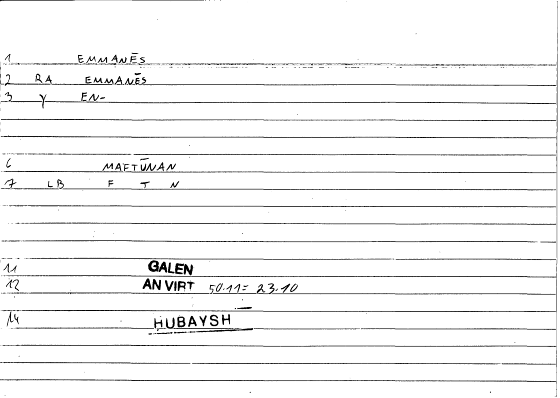 1 EMMANĒS
2 RA EMMANĒS
3 γ EN-
6 MAFTŪNAN
7 LB F T N
11 GALEN
12 AN VIRT 50.11 = 23.10
14 HUBAYSH